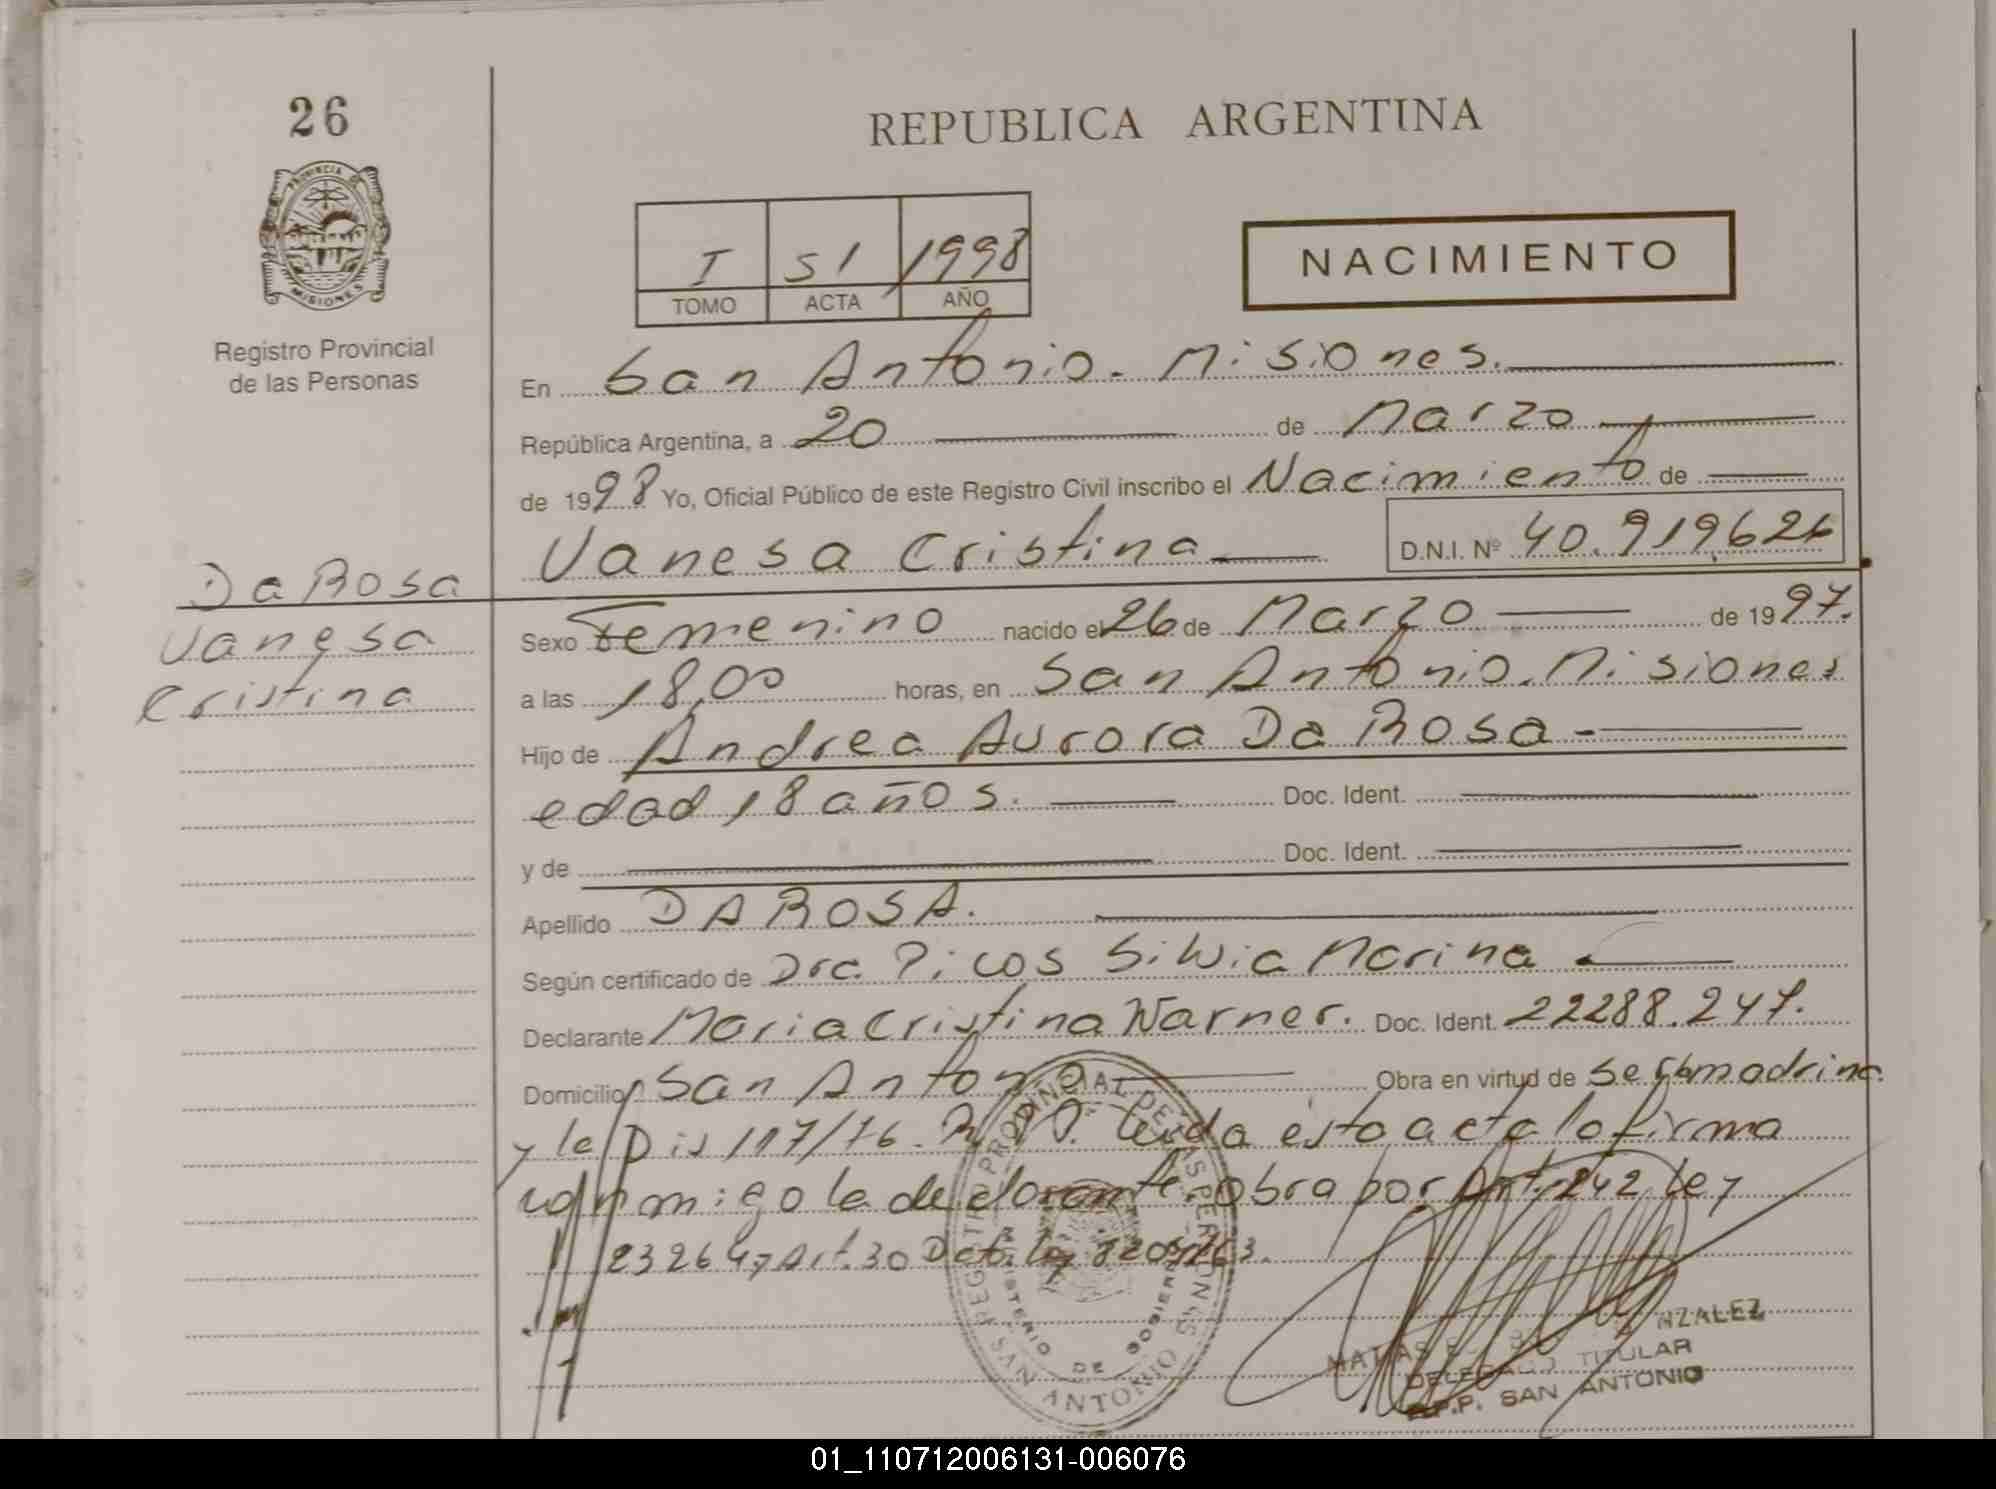 26
PROVINCIA DE
MISIONES
Registro Provincial
de las Personas
REPUBLICA ARGENTINA
I 51 1998
TOMO ACTA AÑO
NACIMIENTO
En San Antonio. Misiones.
República Argentina, a 20 de Marzo
de 1998 Yo, Oficial Público de este Registro Civil inscribo el Nacimiento de
Vanesa Cristina D.N.I. Nº 40.919.626
Da Rosa
Vanesa
Cristina
Sexo Femenino nacido el 26 de Marzo de 1997.
a las 18,00 horas, en San Antonio. Misiones
Hijo de Andrea Aurora Da Rosa -
edad 18 años. Doc. Ident.
y de Doc. Ident.
Apellido DA ROSA.
Según certificado de Dra. Picos Silvia Marina
Declarante Maria Cristina Warner. Doc. Ident. 22288.247.
Domicilio San Antonio Obra en virtud de ser madrina
y la Dis 117/76. Leida esta acta la firma
conmigo la declarante obra por Art. 242 Ley
23264 y Art. 30 Dcto. Ley 8204/63.
REGISTRO PROVINCIAL DE LAS PERSONAS
MINISTERIO DE GOBIERNO
SAN ANTONIO
MATIAS NZALEZ
DELEGADO TITULAR
R.P.P. SAN ANTONIO
01_110712006131-006076